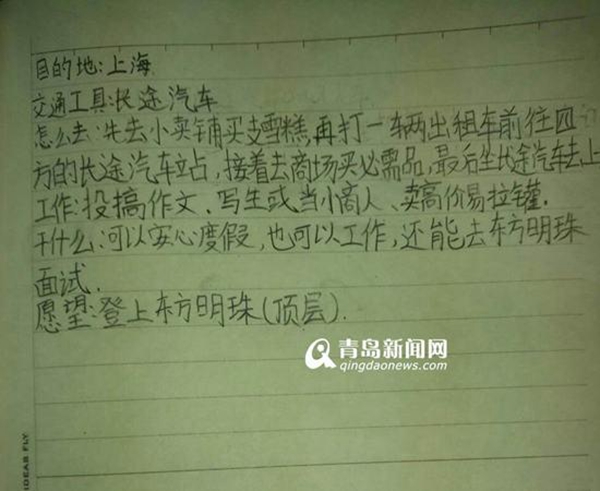 目的地:上海
交通工具:长途汽车
怎么去:先去小卖铺买支雪糕,再打一辆出租车前往四
方的长途汽车站,接着去商场买必需品,最后坐长途汽车去上
工作:投搞作文、写生或当小商人、卖高价易拉罐.
干什么:可以安心度假,也可以工作,还能去东方明珠
面试.
愿望:登上东方明珠(顶层).
青岛新闻网
qingdaonews.com
IDEAS FLY